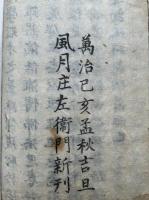 萬治己亥孟秋吉旦
風月庄左衛門新刊